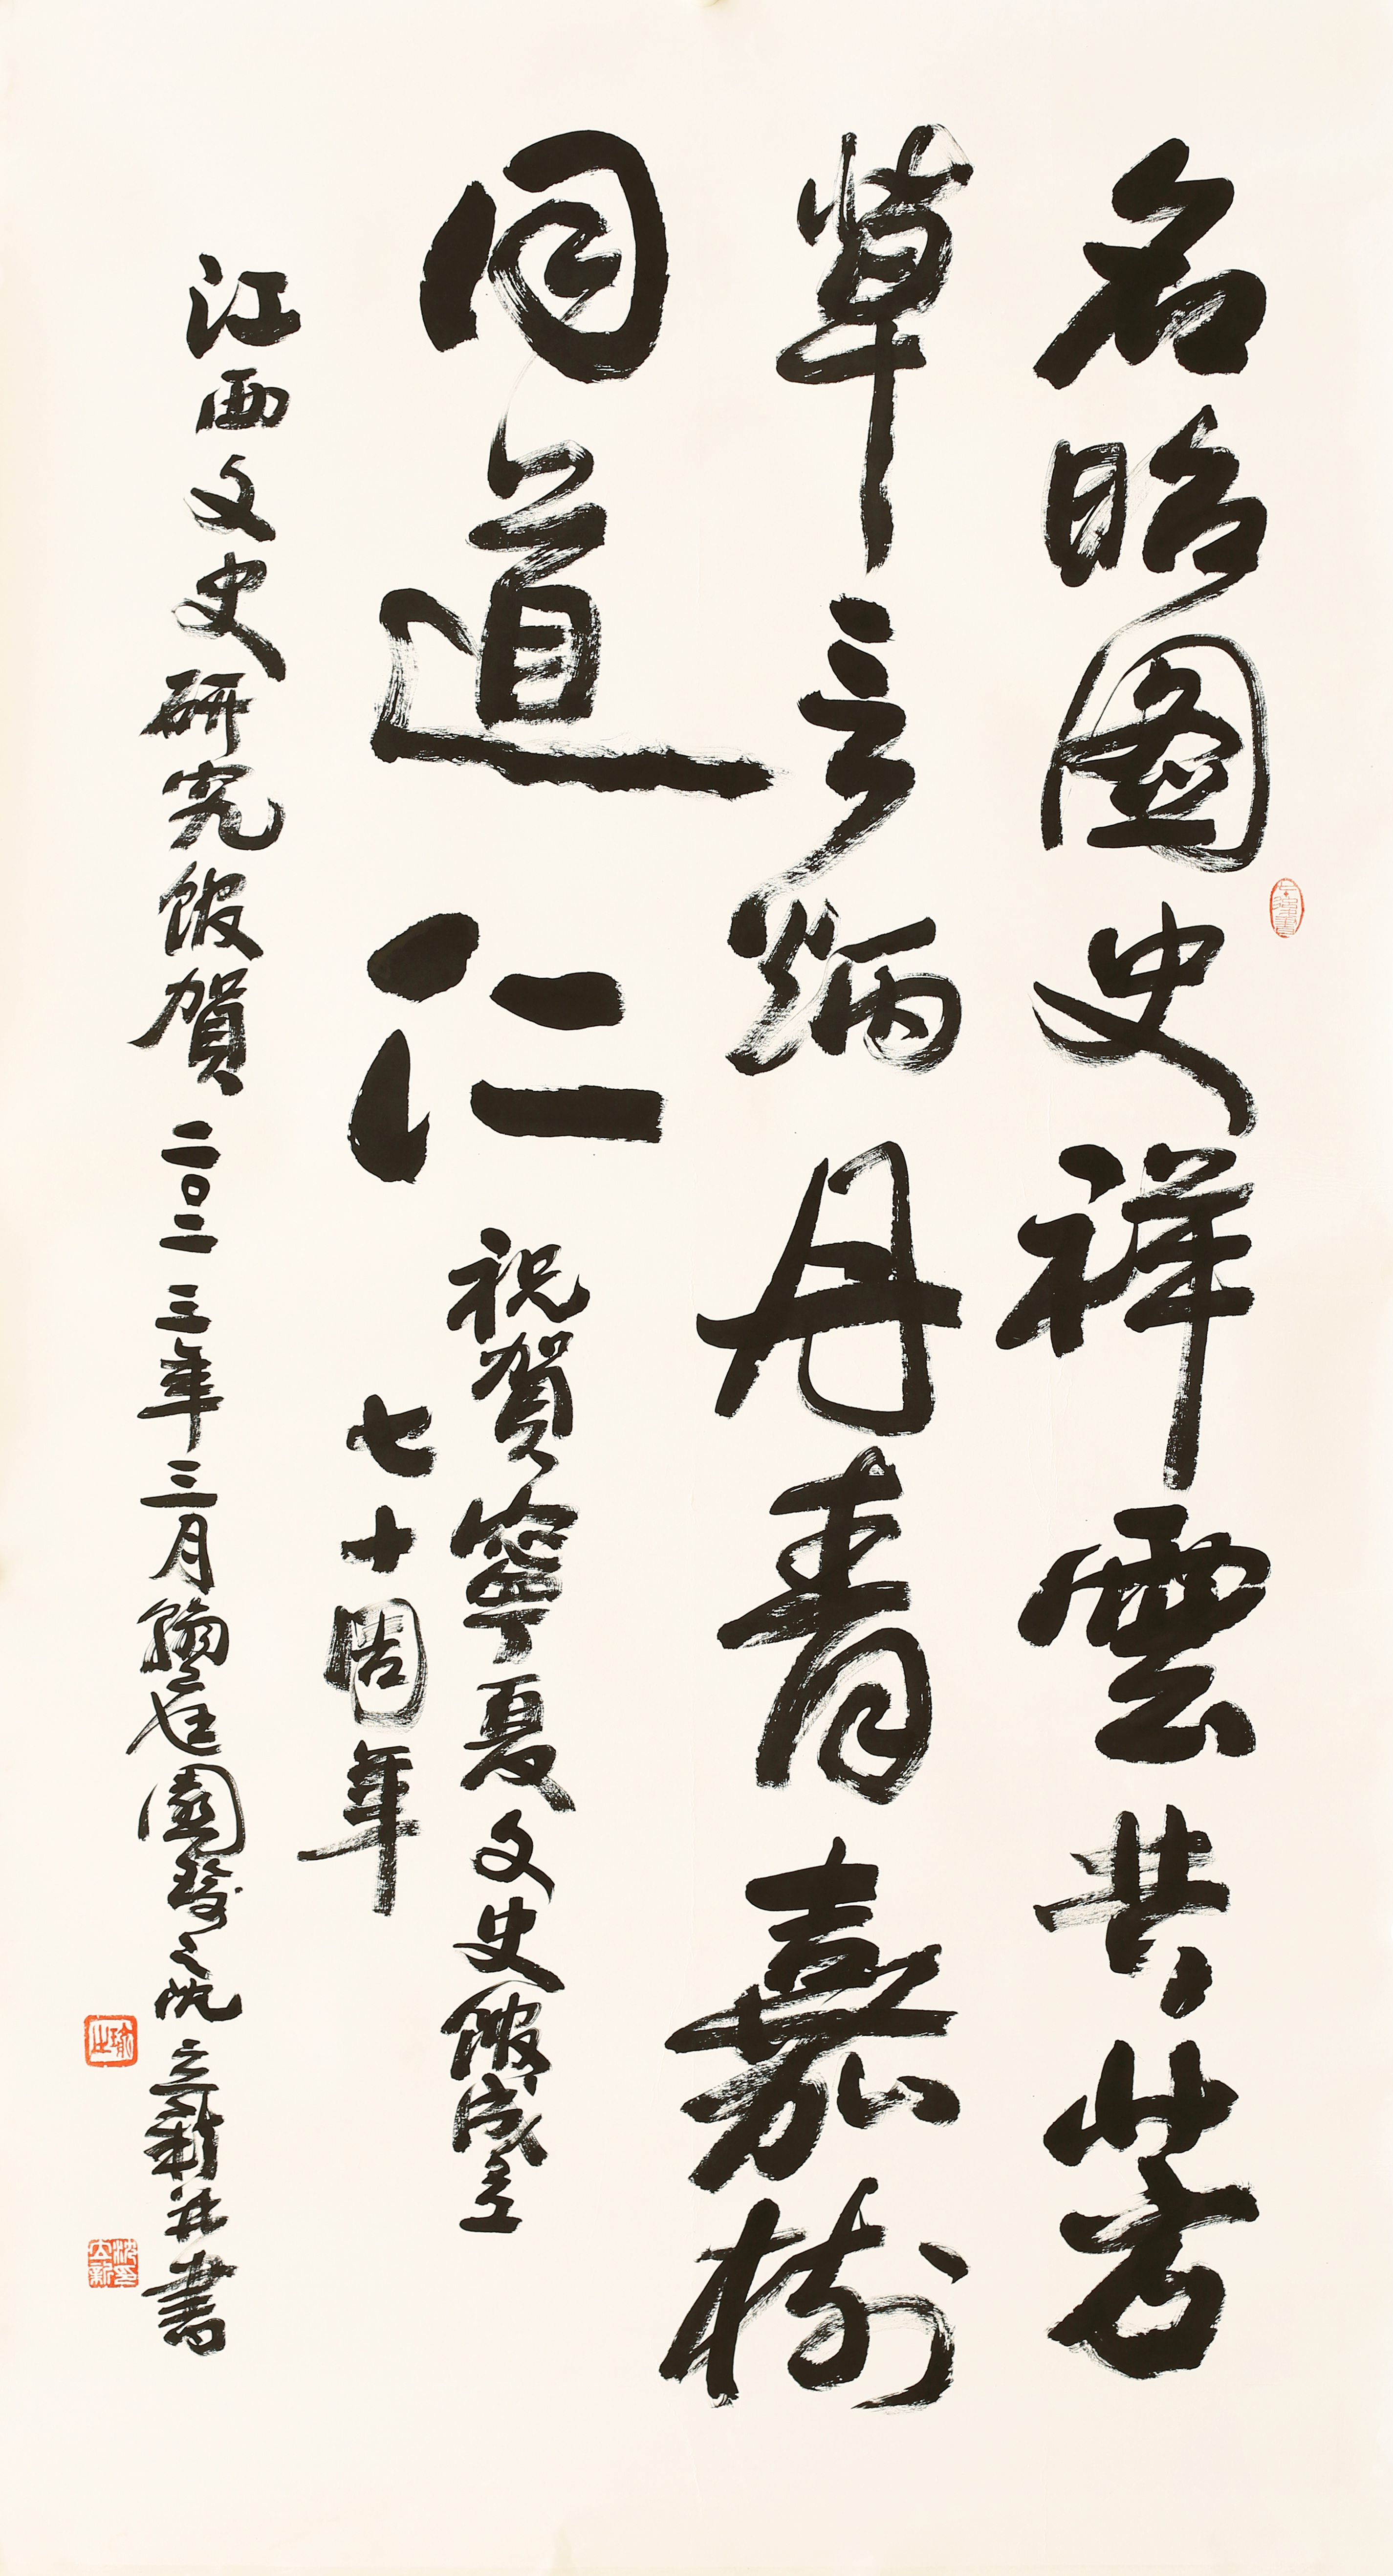 名昭圖史祥雲共芳
草言炳丹青嘉樹
同道仁
祝賀寧夏文史館成立
七十周年
江西文史研究館賀二〇二三年三月 園 沈立新並書